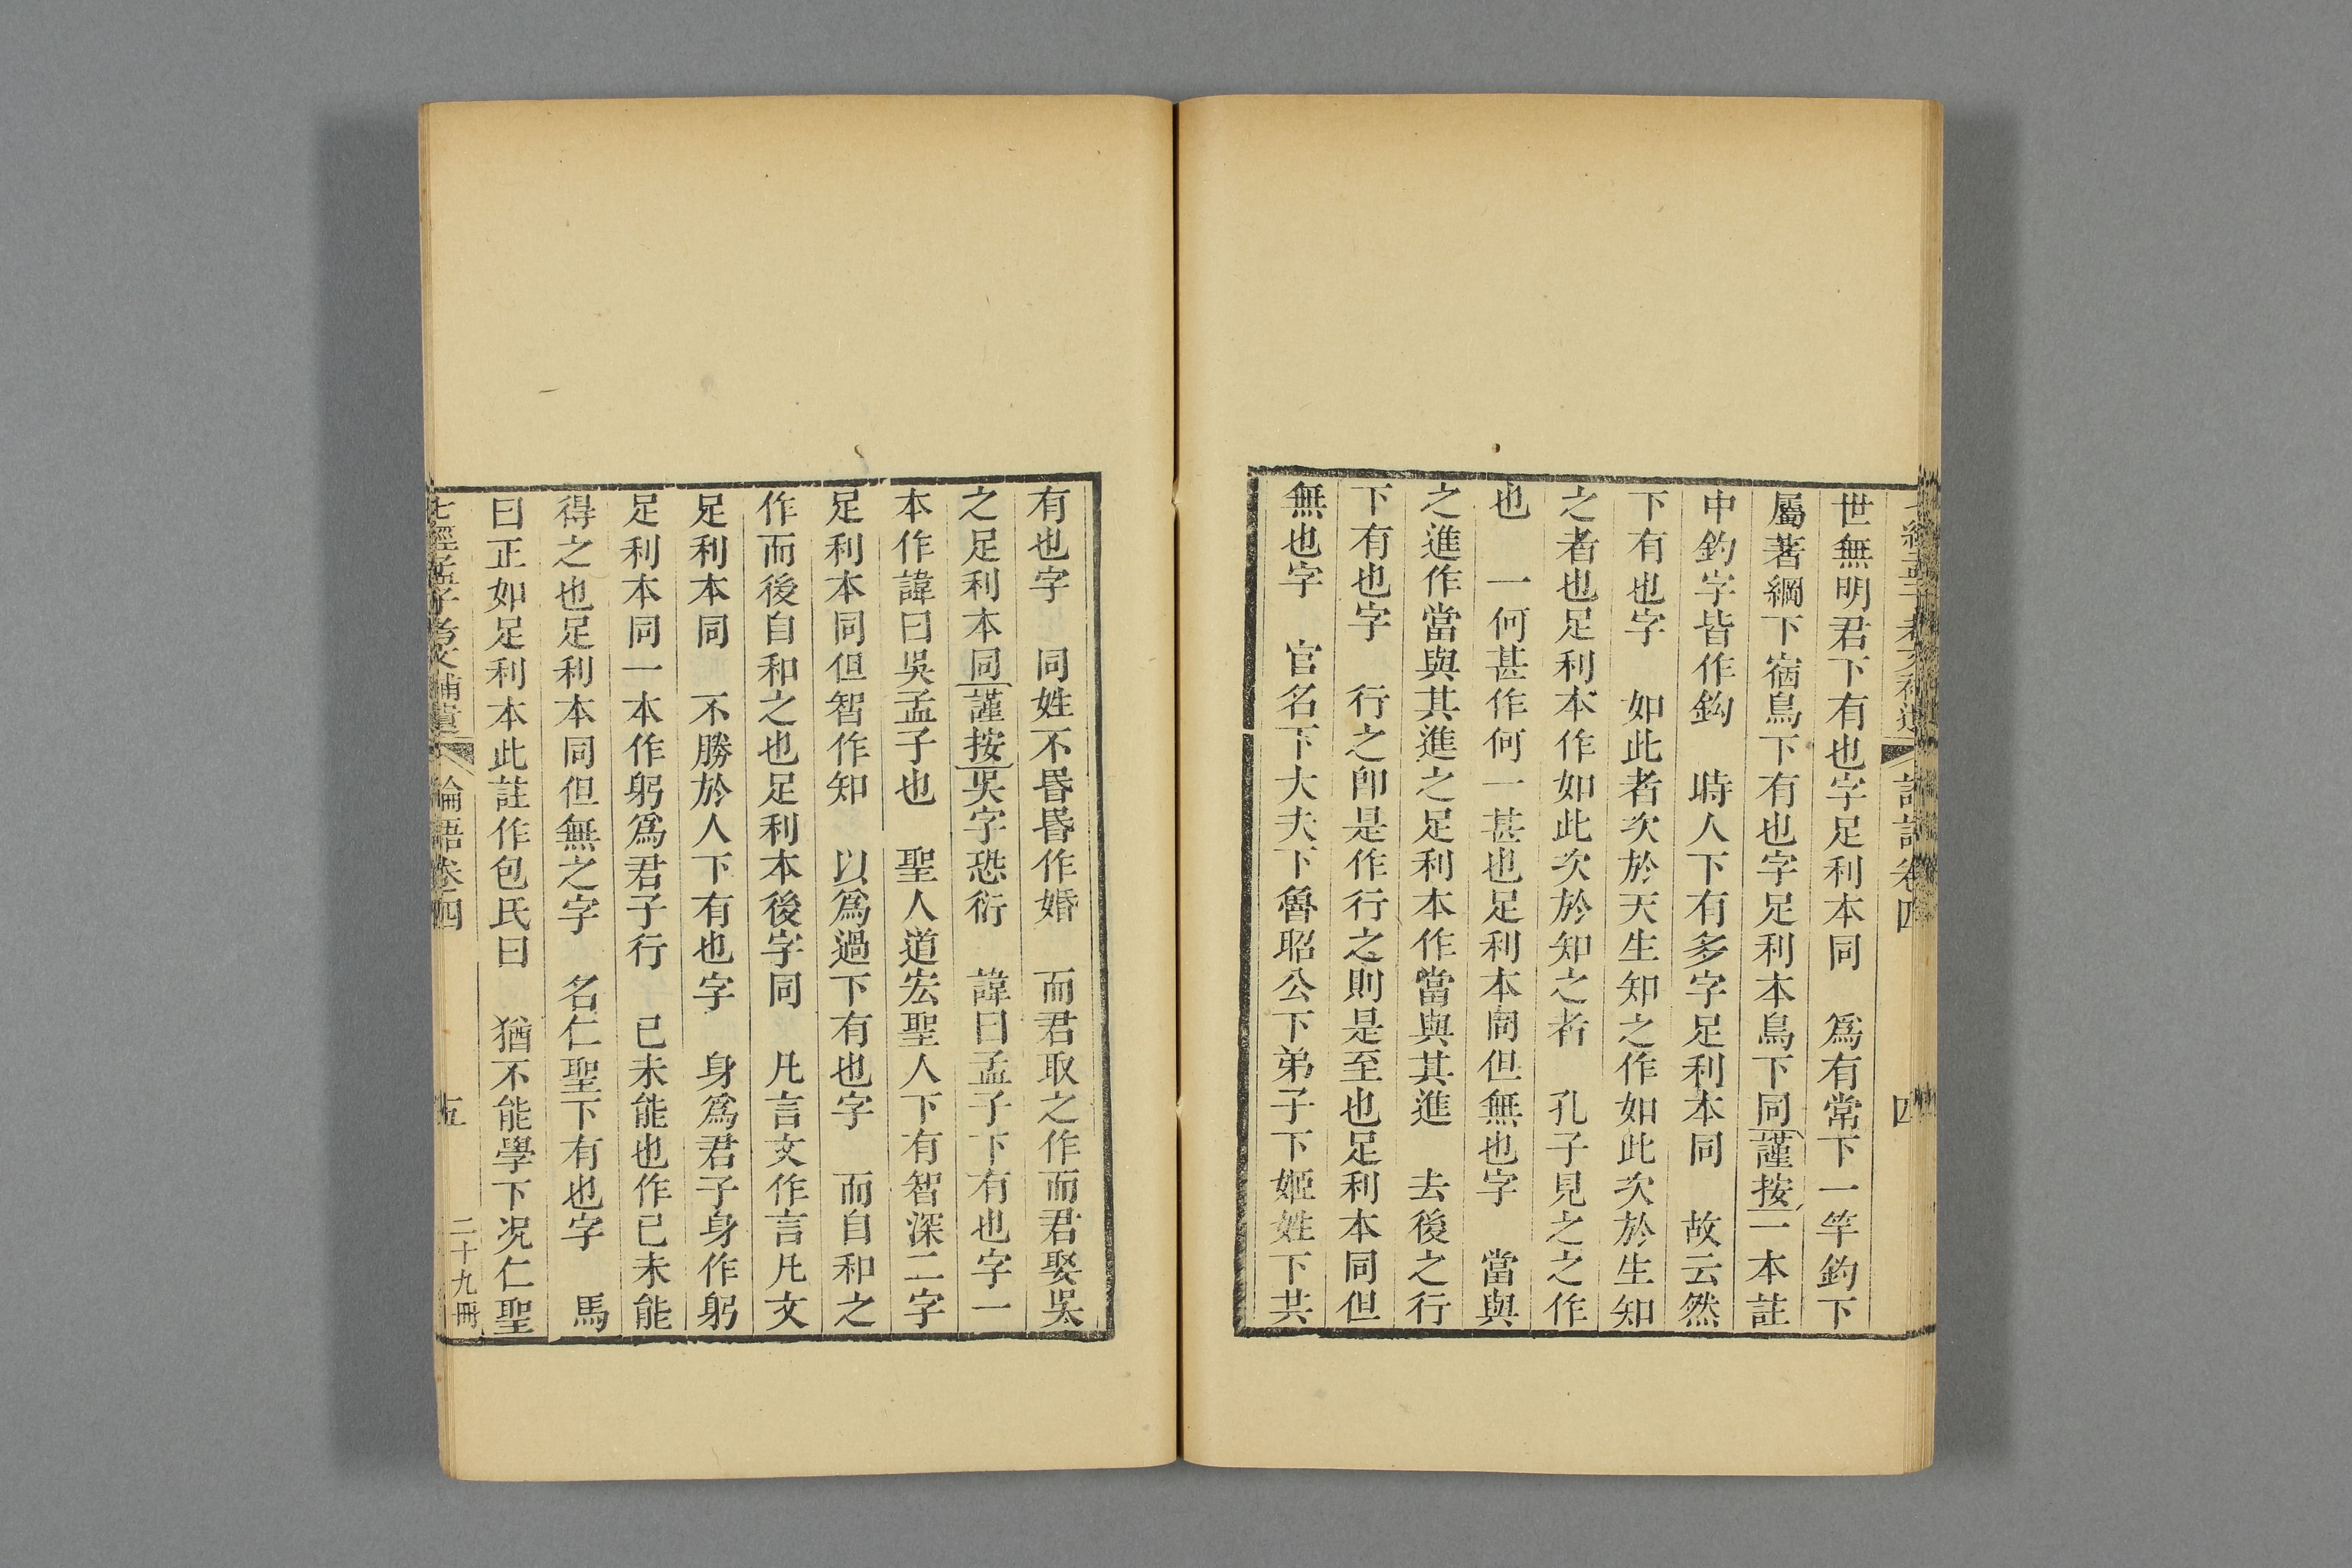 世無明君下有也字足利本同　爲有常下一竿釣下
屬著綱下宿鳥下有也字足利本鳥下同謹按一本註
中釣字皆作鈎　時人下有多字足利本同　故云然
下有也字　如此者次於天生知之作如此次於生知
之者也足利本作如此次於知之者　孔子見之之作
也　一何甚作何一甚也足利本同但無也字　當與
之進作當與其進之足利本作當與其進　去後之行
下有也字　行之卽是作行之則是至也足利本同但
無也字　官名下大夫下魯昭公下弟子下姬姓下共
有也字　同姓不昬昬作婚　而君取之作而君娶吳
之足利本同謹按吳字恐衍　諱曰孟子下有也字一
本作諱曰吳孟子也　聖人道宏聖人下有智深二字
足利本同但智作知　以爲過下有也字　而自和之
作而後自和之也足利本後字同　凡言文作言凡文
足利本同　不勝於人下有也字　身爲君子身作躬
足利本同一本作躬爲君子行　已未能也作已未能
得之也足利本同但無之字　名仁聖下有也字　馬
曰正如足利本此註作包氏曰　猶不能學下况仁聖
七經孟子考文補遺　論語卷四　十五　二十九冊